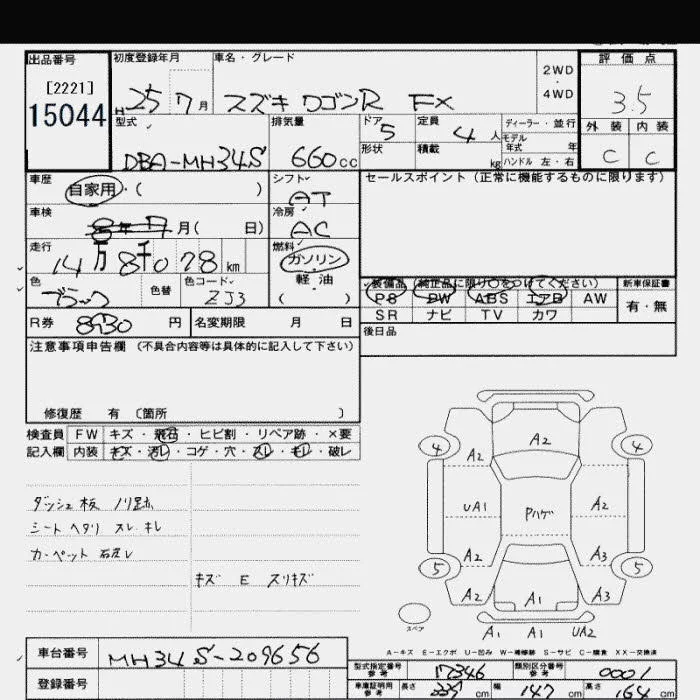 出品番号 初度登録年月 車名・グレード 評価点
[2221] 2WD・4WD
15044 H25 7月 スズキ ワゴンR FX 3.5
型式 排気量 ドア 定員 ディーラー・並行 外装 内装
DBA-MH34S 660cc 5 4人 モデル年式 年 C C
形状 積載 kg ハンドル 左・右
車歴 シフト セールスポイント(正常に機能するものに限ります)
自家用・( ) AT
車検 冷房
8年 7月( 日) AC
走行 燃料
14万8千078km ガソリン
色 色替 色コード 軽油 装備品(純正品に限り○をつけてください) 新車保証書
ブラック ZJ3 ( ) PS PW ABS エアB AW 有・無
R券 8930円 名変期限 月 日 SR ナビ TV カワ
注意事項申告欄(不具合内容等は具体的に記入して下さい) 後日品
修復歴 有 〔箇所 〕
検査員 FW キズ・飛石・ヒビ割・リペア跡・×要
記入欄 内装 キズ・汚レ・コゲ・穴・スレ・キレ・破レ
ダッシュ板 ノリ跡
シートヘタリ スレ キレ
カーペット
キズ E スリキズ
A2
4 A2 A2 4
UA1 Pハゲ A2
A2 A3
5 A2 A1 A3 5
スペア A1 A1 UA2
A-キズ E-エクボ U-凹み W-補修跡 S-サビ C-腐食 XX-交換済
車台番号 MH34S-209656
型式指定番号 参考 17346 類別区分番号 参考 0001
登録番号 車庫証明用 参考 長さ 339cm 幅 147cm 高さ 164cm